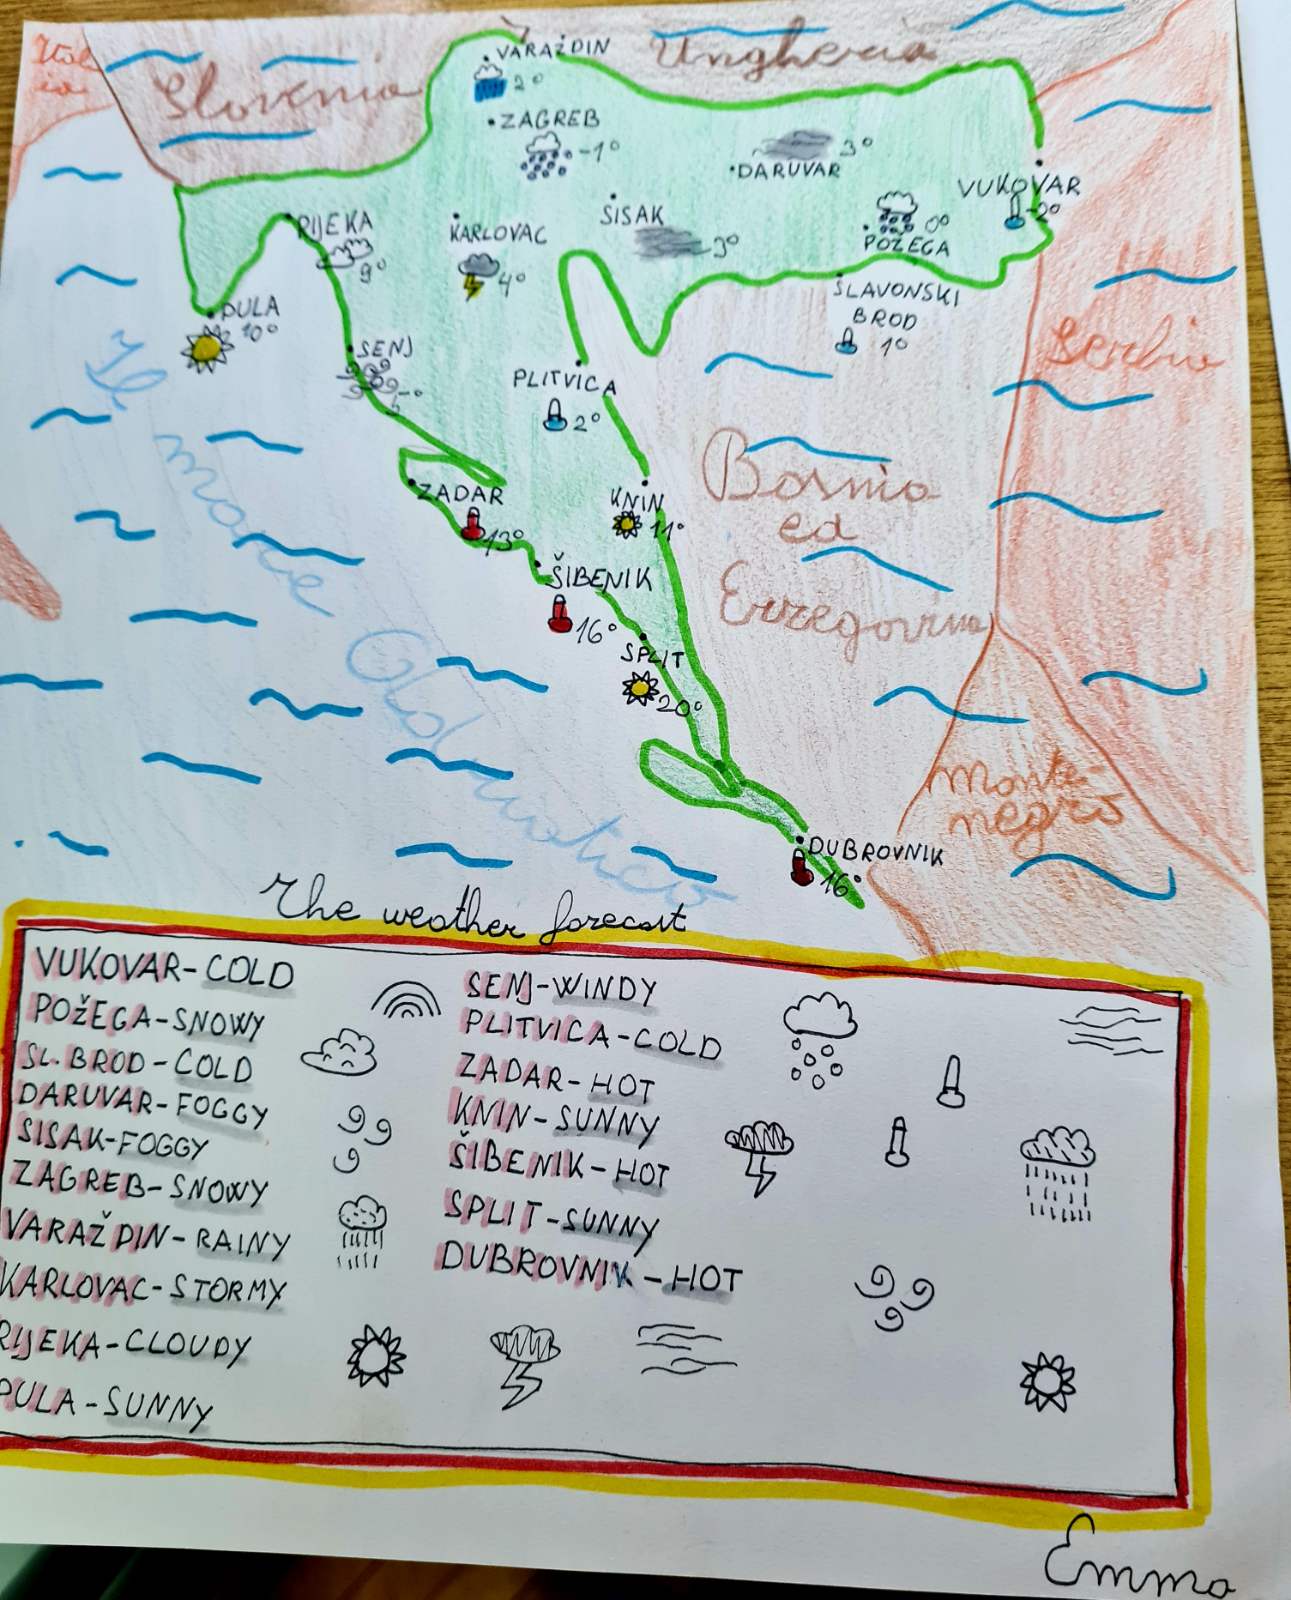 Ital
ia
Slovenia
Ungheria
VARAŽDIN
2°
ZAGREB
-1°
DARUVAR
3°
VUKOVAR
-2°
RIJEKA
9°
KARLOVAC
4°
SISAK
3°
POŽEGA
0°
PULA
10°
SENJ
5°
SLAVONSKI
BROD
1°
Serbia
PLITVICA
2°
Il
mare
Adriatico
ZADAR
13°
KNIN
11°
Bosnia
ed
Erzegovina
ŠIBENIK
16°
SPLIT
20°
Monte-
negro
DUBROVNIK
16°
The weather forecast
VUKOVAR-COLD
POŽEGA-SNOWY
SL. BROD-COLD
DARUVAR-FOGGY
SISAK-FOGGY
ZAGREB-SNOWY
VARAŽDIN-RAINY
KARLOVAC-STORMY
RIJEKA-CLOUDY
PULA-SUNNY
SENJ-WINDY
PLITVICA-COLD
ZADAR-HOT
KNIN-SUNNY
ŠIBENIK-HOT
SPLIT-SUNNY
DUBROVNIK-HOT
Emma